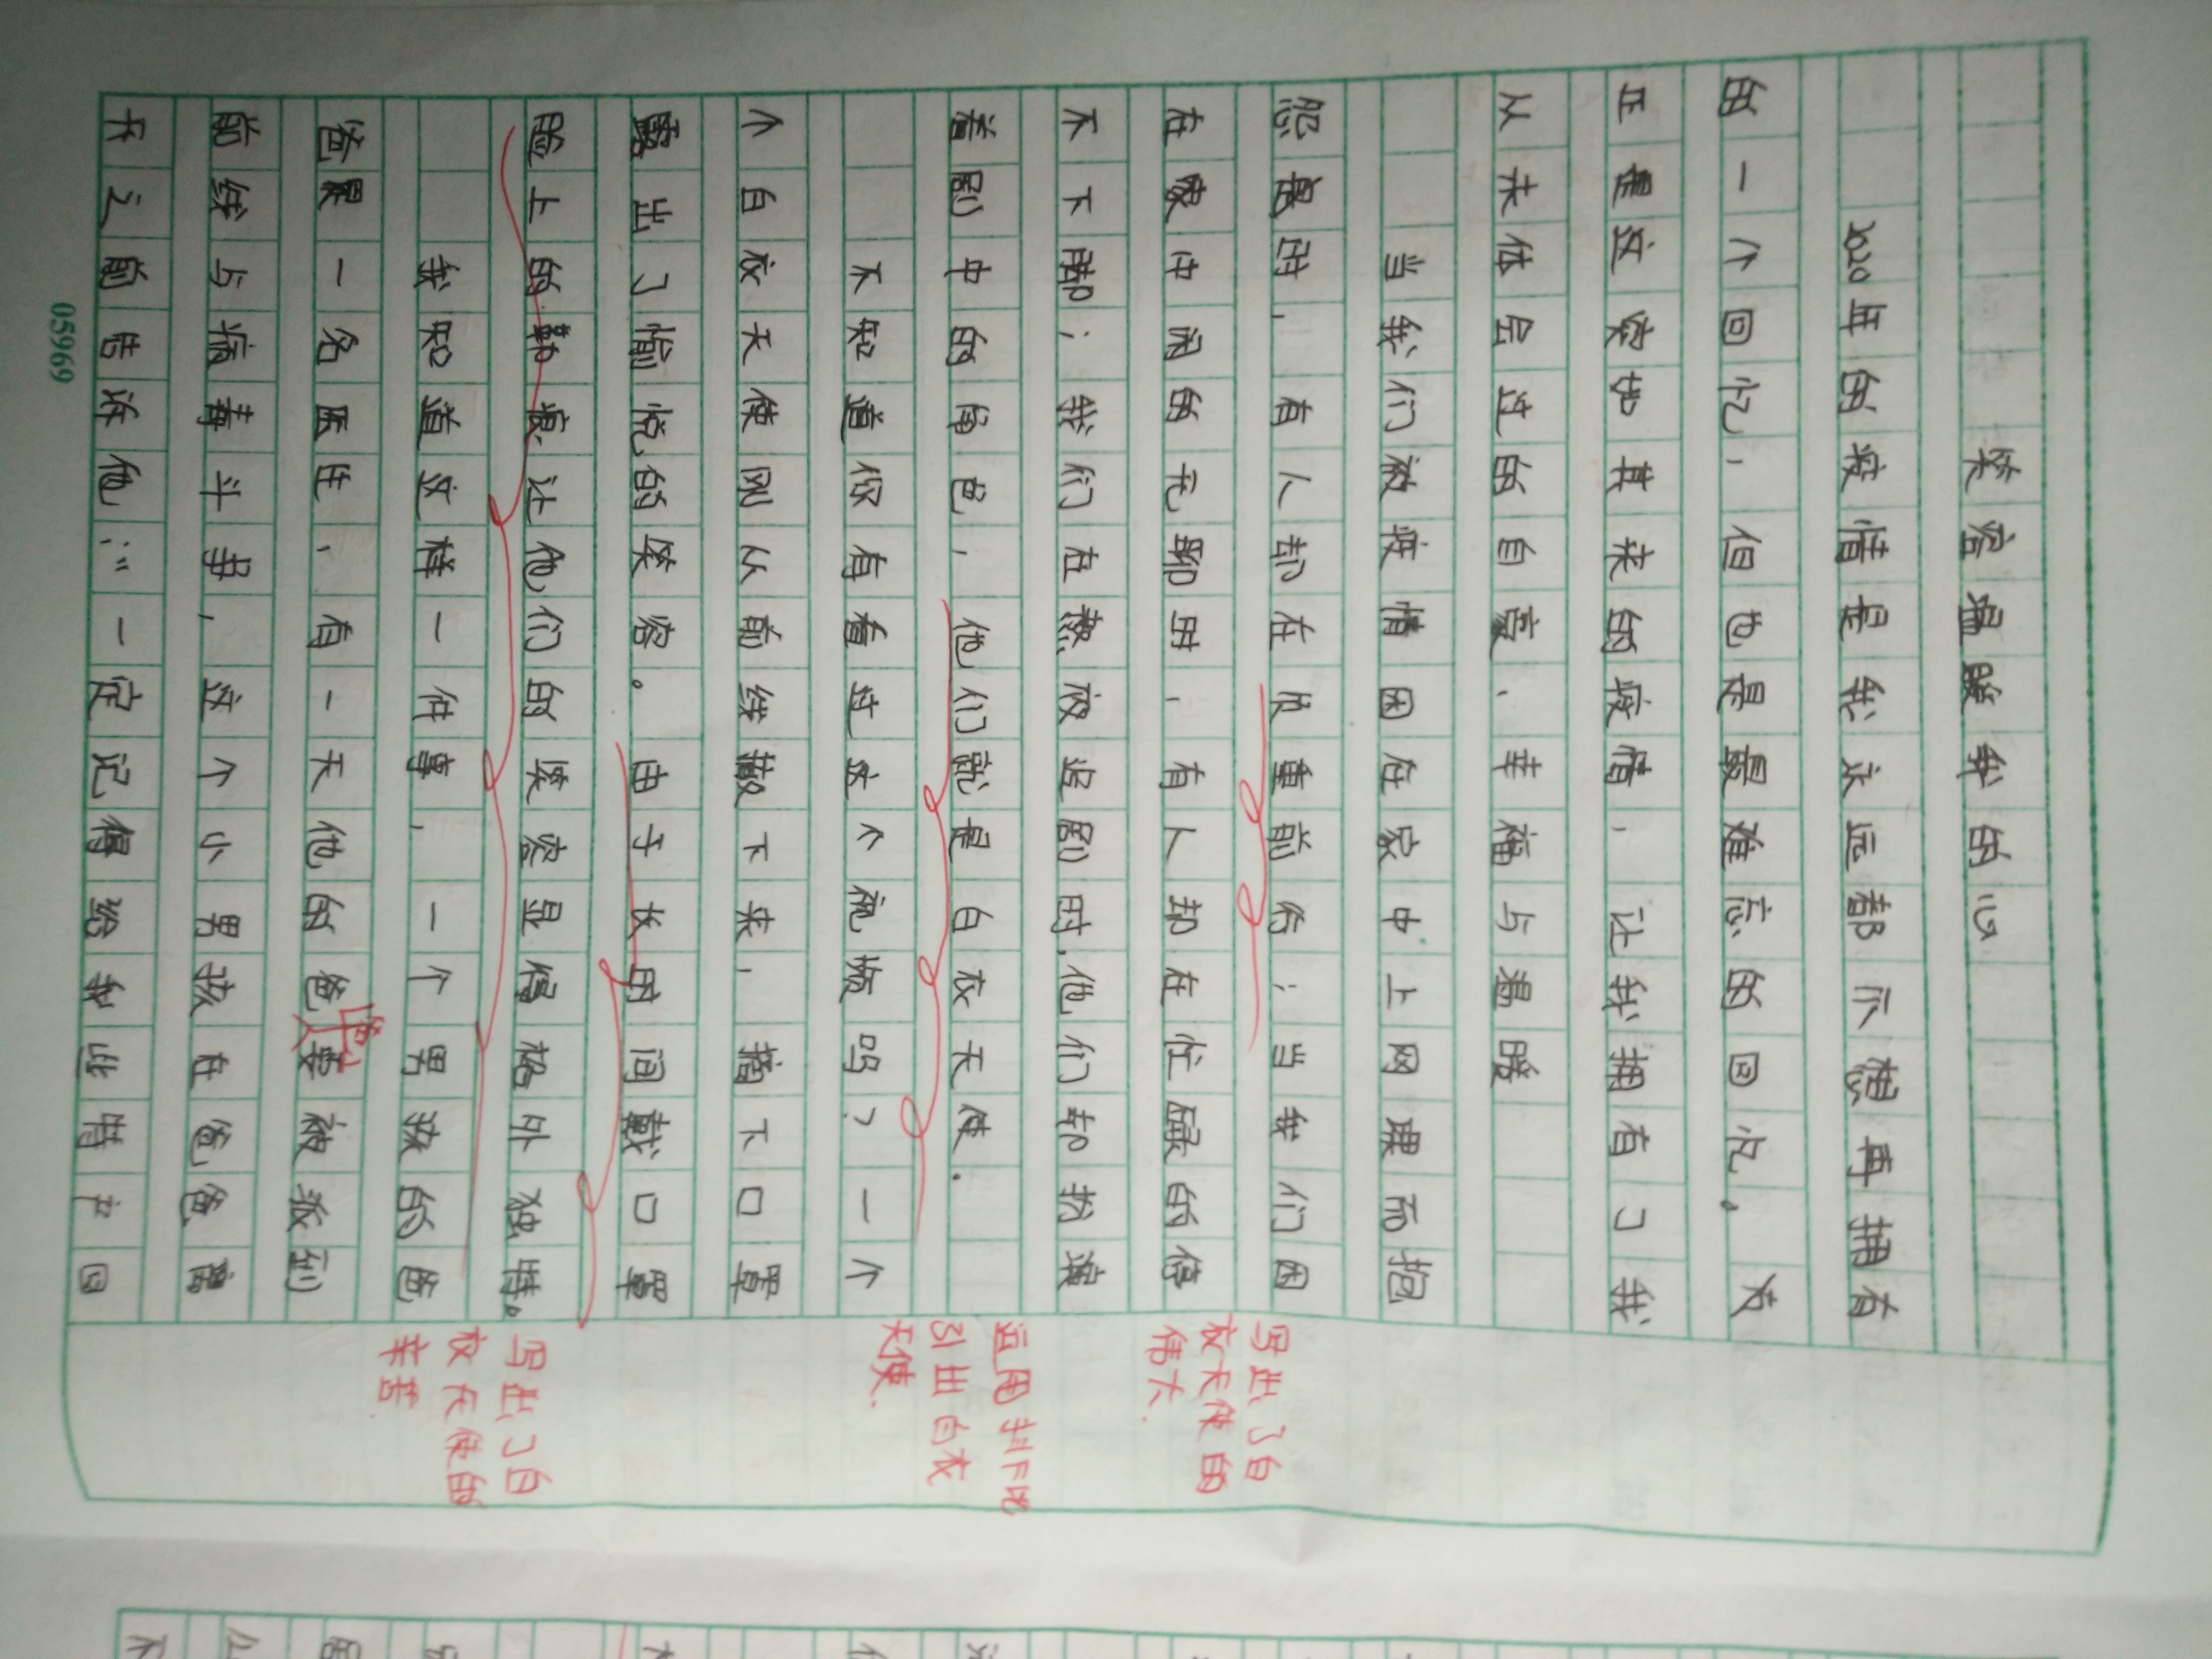 笑容温暖我的心
2020年的疫情是我永远都不想再拥有
的一个回忆，但也是最难忘的回忆。
正是这突如其来的疫情，让我拥有了我
从未体会过的自豪、幸福与温暖
当我们被疫情困在家中上网课而抱
怨急时，有人却在负重前行；当我们困
在家中闲的无聊时，有人却在忙碌的停
不下脚；我们在熬夜追剧时，他们却扮演
着剧中的角色，他们就是白衣天使.
不知道你有看过这个视频吗？一个
个白衣天使刚从前线撤下来，摘下口罩
露出了愉悦的笑容。由于长时间戴口罩
脸上的勒痕让他们的笑容显得格外独特。
我知道这样一件事，一个男孩的爸
爸是一名医生，有一天他的爸爸要被派到
前线与病毒斗争，这个小男孩在爸爸离
开之前告诉他：“一定记得给我些
写出了白
衣天使的
伟大.
运用排比
引出白衣
天使.
写出了白
衣天使的
辛苦
05969